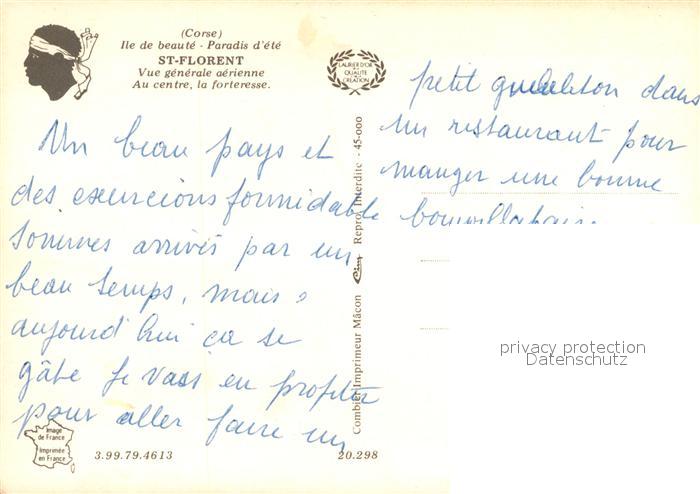 (Corse)
Ile de beauté - Paradis d'été
ST-FLORENT
Vue générale aérienne
Au centre, la forteresse.
LAURIER D'OR
DE
QUALITÉ
DE LA
CRÉATION
Un beau pays et
des excurcions formidable
sommes arrivés par un
beau temps, mais
aujourd'hui ca se
gâte Je vais en profiter
pour aller faire un
petit gueuleton dans
un restaurant pour
manger une bonne
Combier Imprimeur Mâcon Cim Repro. Interdite - 45-000
Image
de France
Imprimée
en France
3.99.79.4613
20.298
privacy protection
Datenschutz